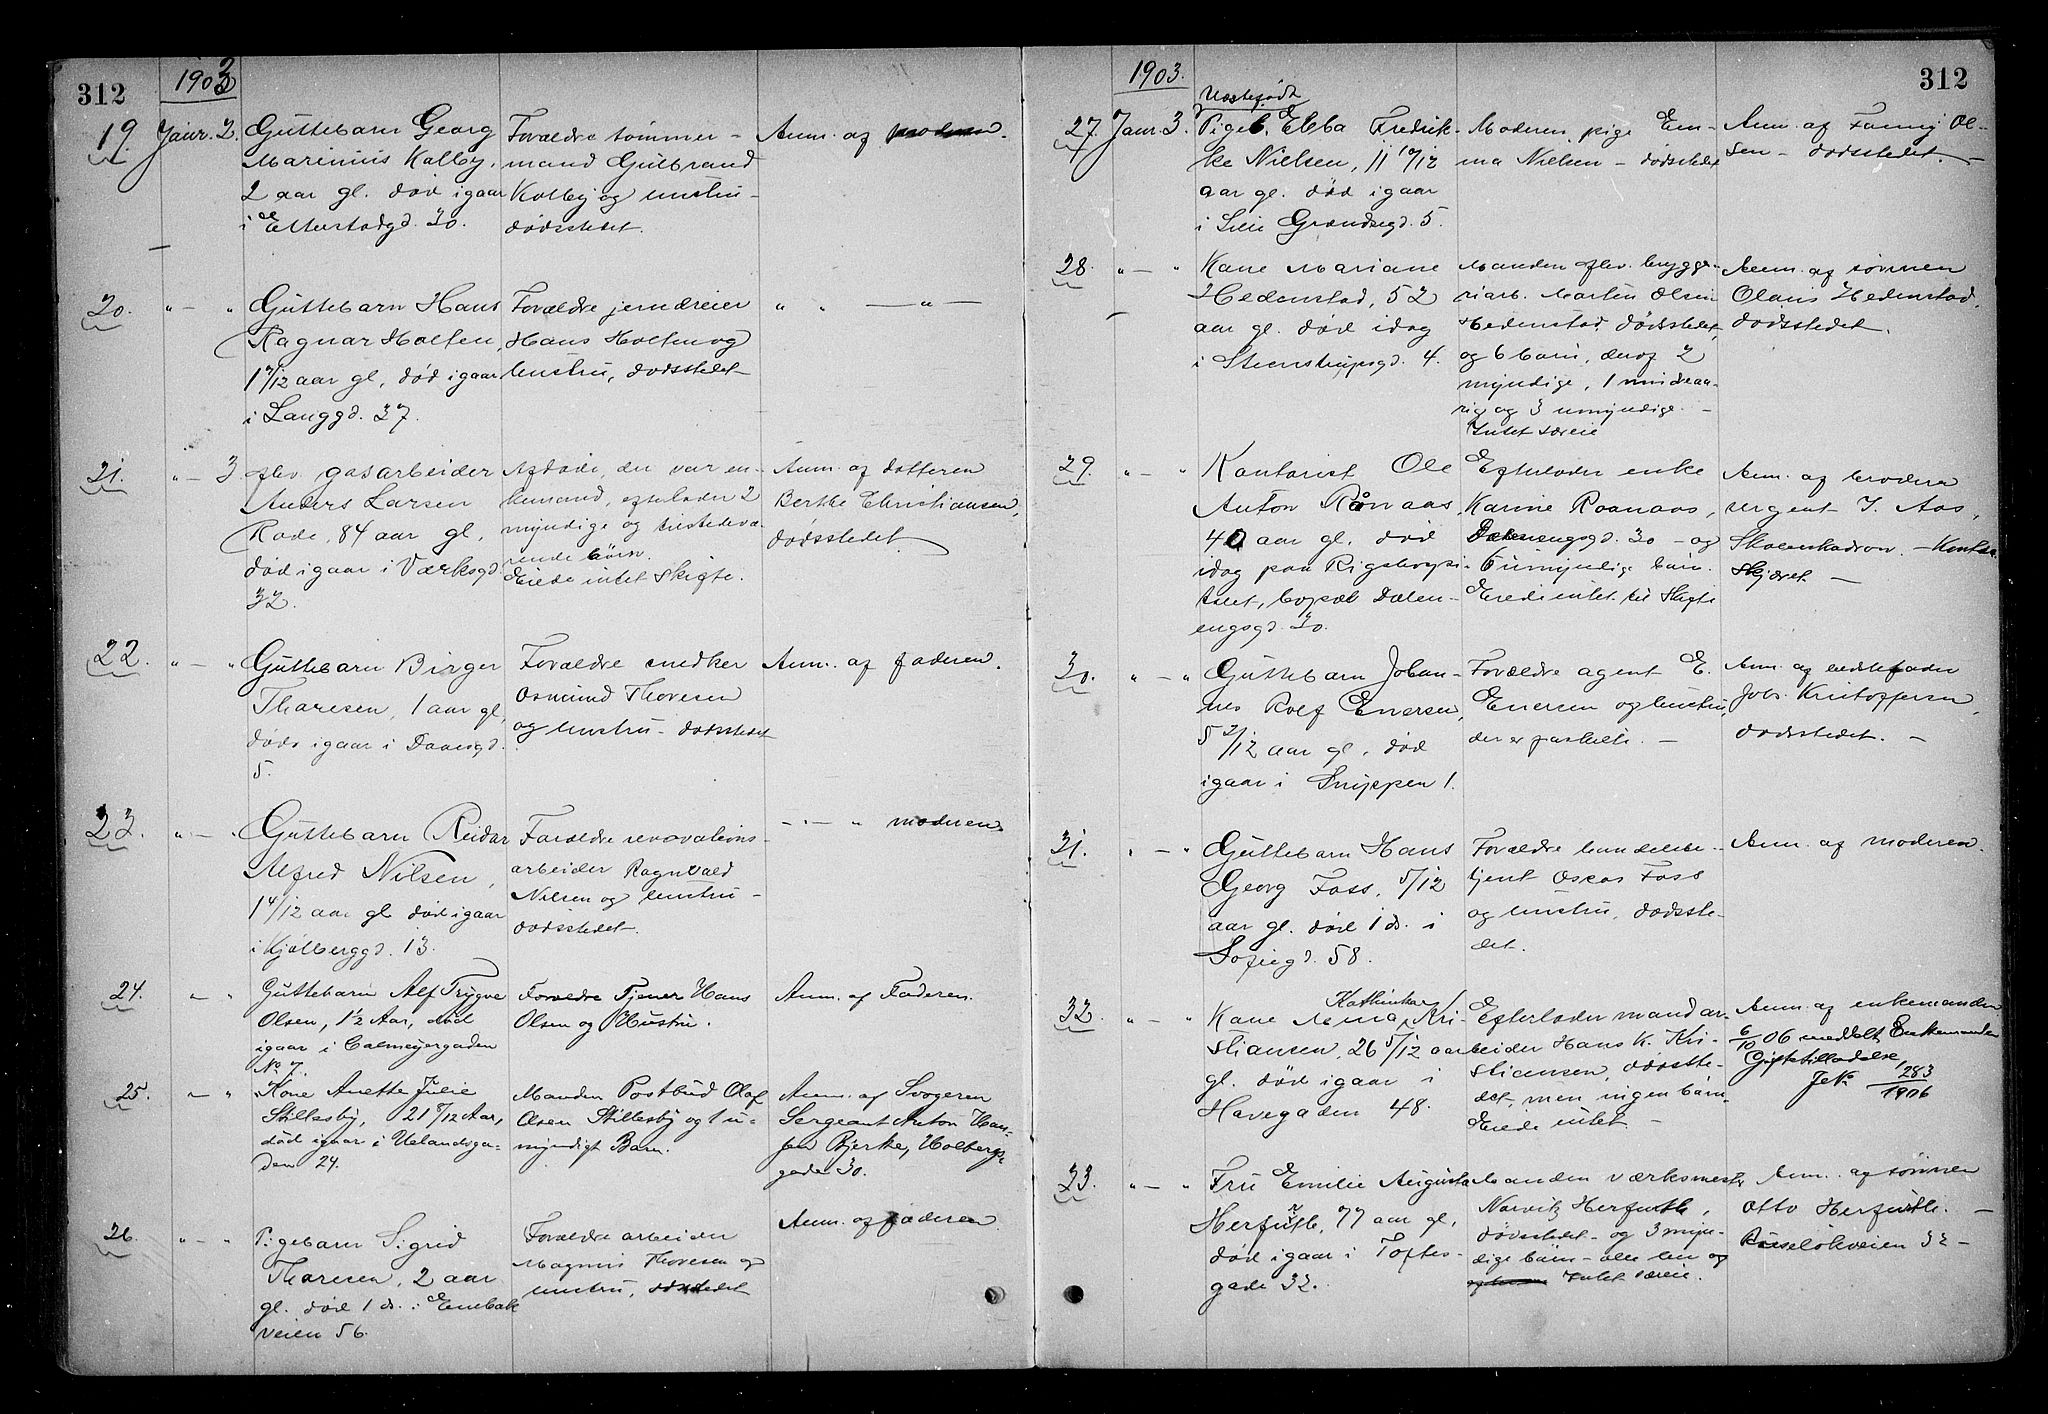 312
1903
19. Janr. 2.
Guttebarn Georg
Marinius Kolby,
2 aar gl. død igaar
i Etterstadgd. 30.
Forældre tømmer-
mand Gulbrand
Kolby og hustru -
dødsstedet.
Anm. af moderen.
20. " — "
Guttebarn Hans
Ragnar Holten,
1 7/12 aar gl, død igaar
i Langgd. 37.
Forældre jerndreier
Hans Holten og
hustru, dødsstedet
" " — " —
21. " — 3
Fhv. gasarbeider
Anders Larsen
Rode, 84 aar gl,
død igaar i Værksgd.
32.
Afdøde, der var en-
kemand, efterlader 2
myndige og tilstedevæ-
rende børn.
Eiede intet Skifte.
Anm. af datteren
Berthe Christiansen,
dødsstedet
22. " — "
Guttebarn Birger
Thoresen, 1 aar gl,
døde igaar i Daaesgd.
5.
Forældre snedker
Osmund Thoresen
og hustru - dødsstedet
Anm. af faderen.
23. " — "
Guttebarn Reidar
Alfred Nilsen,
1 4/12 aar gl død igaar
i Kjølberggd. 13.
Forældre renovations-
arbeider Ragnvald
Nilsen og hustru -
dødsstedet.
— " — " moderen.
24. " — "
Guttebarn Alf Trygve
Olsen, 1½ Aar, død
igaar i Calmeyergaden
No 7.
Forældre Tjener Hans
Olsen og Hustru.
Anm. af Faderen.
25. " — "
Kone Anette Julie
Stillesby, 21 8/12 Aar,
død igaar i Uelandsga-
den 24.
Manden Postbud Olaf
Olsen Stillesby og 1 u-
myndigt Barn.
Anm. af Svogeren
Sergeant Anton Han-
sen Bjerke, Holbergs-
gade 30.
26. " — "
Pigebarn Sigrid
Thoresen, 2 aar
gl. død 1 ds. i Enebak
veien 56.
Forældre arbeider
Magnus Thoresen og
hustru, dødsstedet
Anm. af faderen.
1903.
312
27. Janr. 3.
Uægtefødt
Pigeb. Ebba Fredrik-
ke Nielsen, 11 10/12
aar gl. død igaar
i Lille Grændsegd. 5.
Moderen, pige Em-
ma Nielsen - dødsstedet
Anm. af Fanny Ol-
sen - dødsstedet. -
28. " — "
Kone Mariane
Hedenstad, 52
aar gl. død idag
i Steenstrupsgd. 4.
Manden fhv. brygge-
riarb. Morten Olsen
Hedenstad, dødsstedet,
og 6 børn, deraf 2
myndige, 1 mindreaa-
rig og 3 umyndige. -
Intet særeie
Anm. af sønnen
Olaus Hedenstad,
dødsstedet.
29. " — "
Kontorist Ole
Anton Rånaas,
40 aar gl. død
idag paa Rigshospi-
talet, bopæl Dælen-
engsgd. 30.
Efterlader enke
Karine Raanaas,
Dælenengsgd. 30 - og
6 umyndige børn.
Eiede intet til Skifte
Anm. af broderen
sergent J. Aas,
Skoleeskadron. - Kontra-
skjæret. —
30. " — "
Guttebarn Johan-
nes Rolf Enersen,
5 2/12 aar gl. død
igaar i Snippen 1.
Forældre agent E.
Enersen og hustru,
der er fraskilt. —
Anm. af bedstefader
Johs. Kristoffersen,
dødsstedet. —
31. " — "
Guttebarn Hans
Georg Foss, 5/12
aar gl. død 1 ds. i
Sofiegd. 58.
Forældre handelsbe-
tjent Oscar Foss
og hustru, dødsste-
det.
Anm. af moderen.
32. " — "
Kathinka
Kone Mina, Kri-
stiansen, 26 5/12 aar
gl. død igaar i
Havegaden 48.
Efterlader mand ar-
beider Hans K. Kri-
stiansen, dødsste-
det, men ingen børn.
Eiede intet —
Anm. af enkemanden
6/10 06 meddelt Enkemanden
Giftetilladelse
J.No 283/1906
33. " — "
Fru Emilie Augusta
Herfurth, 77 aar gl,
død igaar i Toftes-
gade 32.
Manden værksmester
Herfurth,
dødsstedet - og 3 myn-
dige børn - alle her og
Intet særeie.
Anm. af sønnen
Otto Herfurth. -
Ruseløkveien 32 -